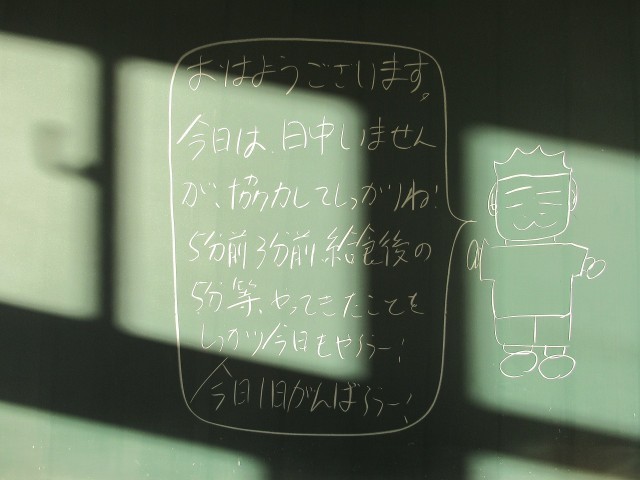 おはようございます。
今日は、日中いません
が、協力してしっかりね!
5分前3分前給食後の
5分等、やってきたことを
しっかり今日もやろうー!
今日1日がんばろうー!